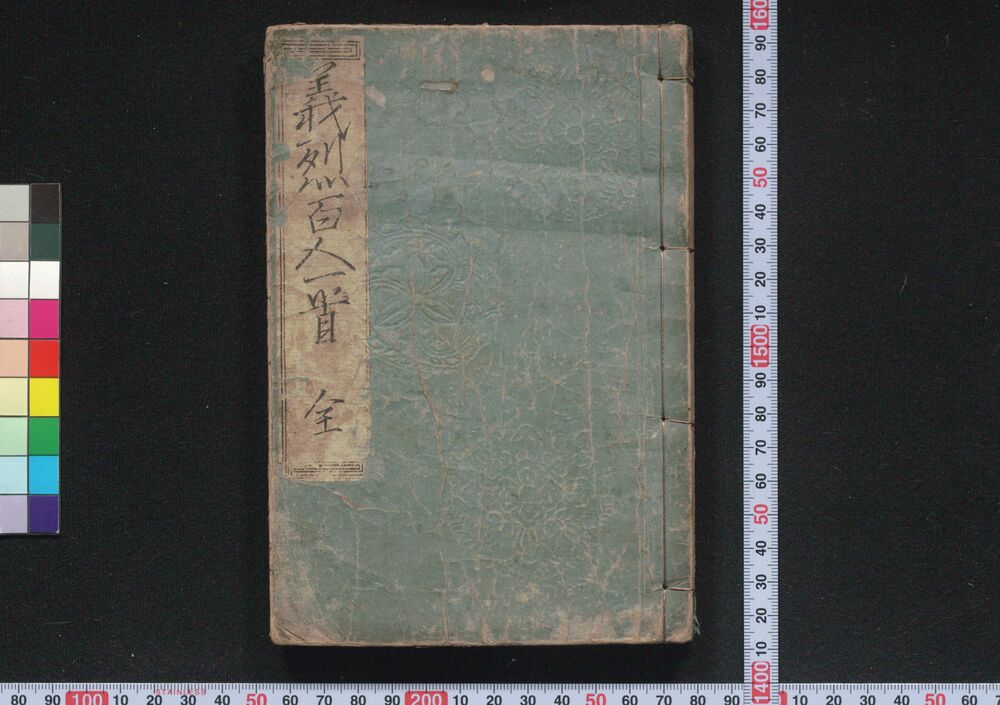 義烈百人一首 全
160
90
80
70
60
50
40
30
20
10
1500
90
80
70
60
50
40
30
20
10
1400
80 90 100 10 20 30 40 50 60 70 80 90 200 10 20 30 40 50 60 70 80 90 10 20 30 40 50 60
STAINLESS